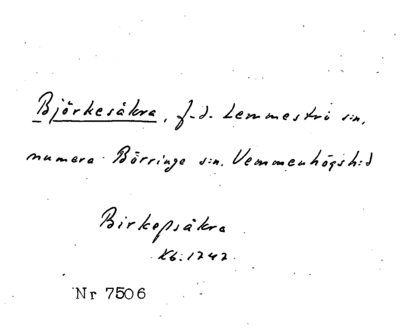 Björkesåkra, f.d. Lemmeströ s:n,
numera Börringe s:n. Vemmenhögs h:d
Birkepsåkra
Kb. 1747.
Nr 7506